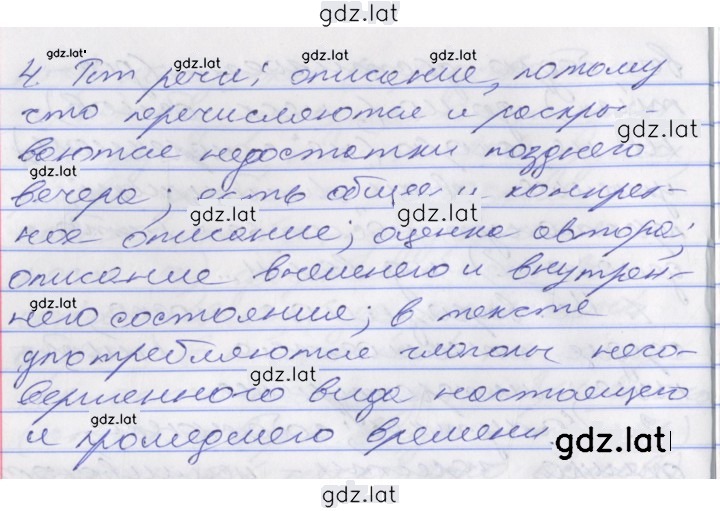 gdz.lat
gdz.lat gdz.lat gdz.lat
4. Тип речи: описание, потому
что перечисляются и раскры-
gdz.lat
ваются недостатки позднего
gdz.lat
вечера; есть общее и конкрет-
gdz.lat gdz.lat
ное описание; оценка автора;
описание внешнего и внутрен-
gdz.lat
него состояния; в тексте
употребляются глаголы несо-
gdz.lat
вершенного вида настоящего
gdz.lat
и прошедшего времени.
gdz.lat
gdz.lat